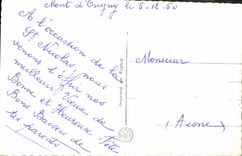 Mont d'Origny le 5.12.50
A l'occasion de la
St Nicolas, nous
venons t'offrir nos
meilleurs Vœux de
Bonne et Heureuse Fête
Bons Baisers de
tes parents
Monsieur
(Aisne)